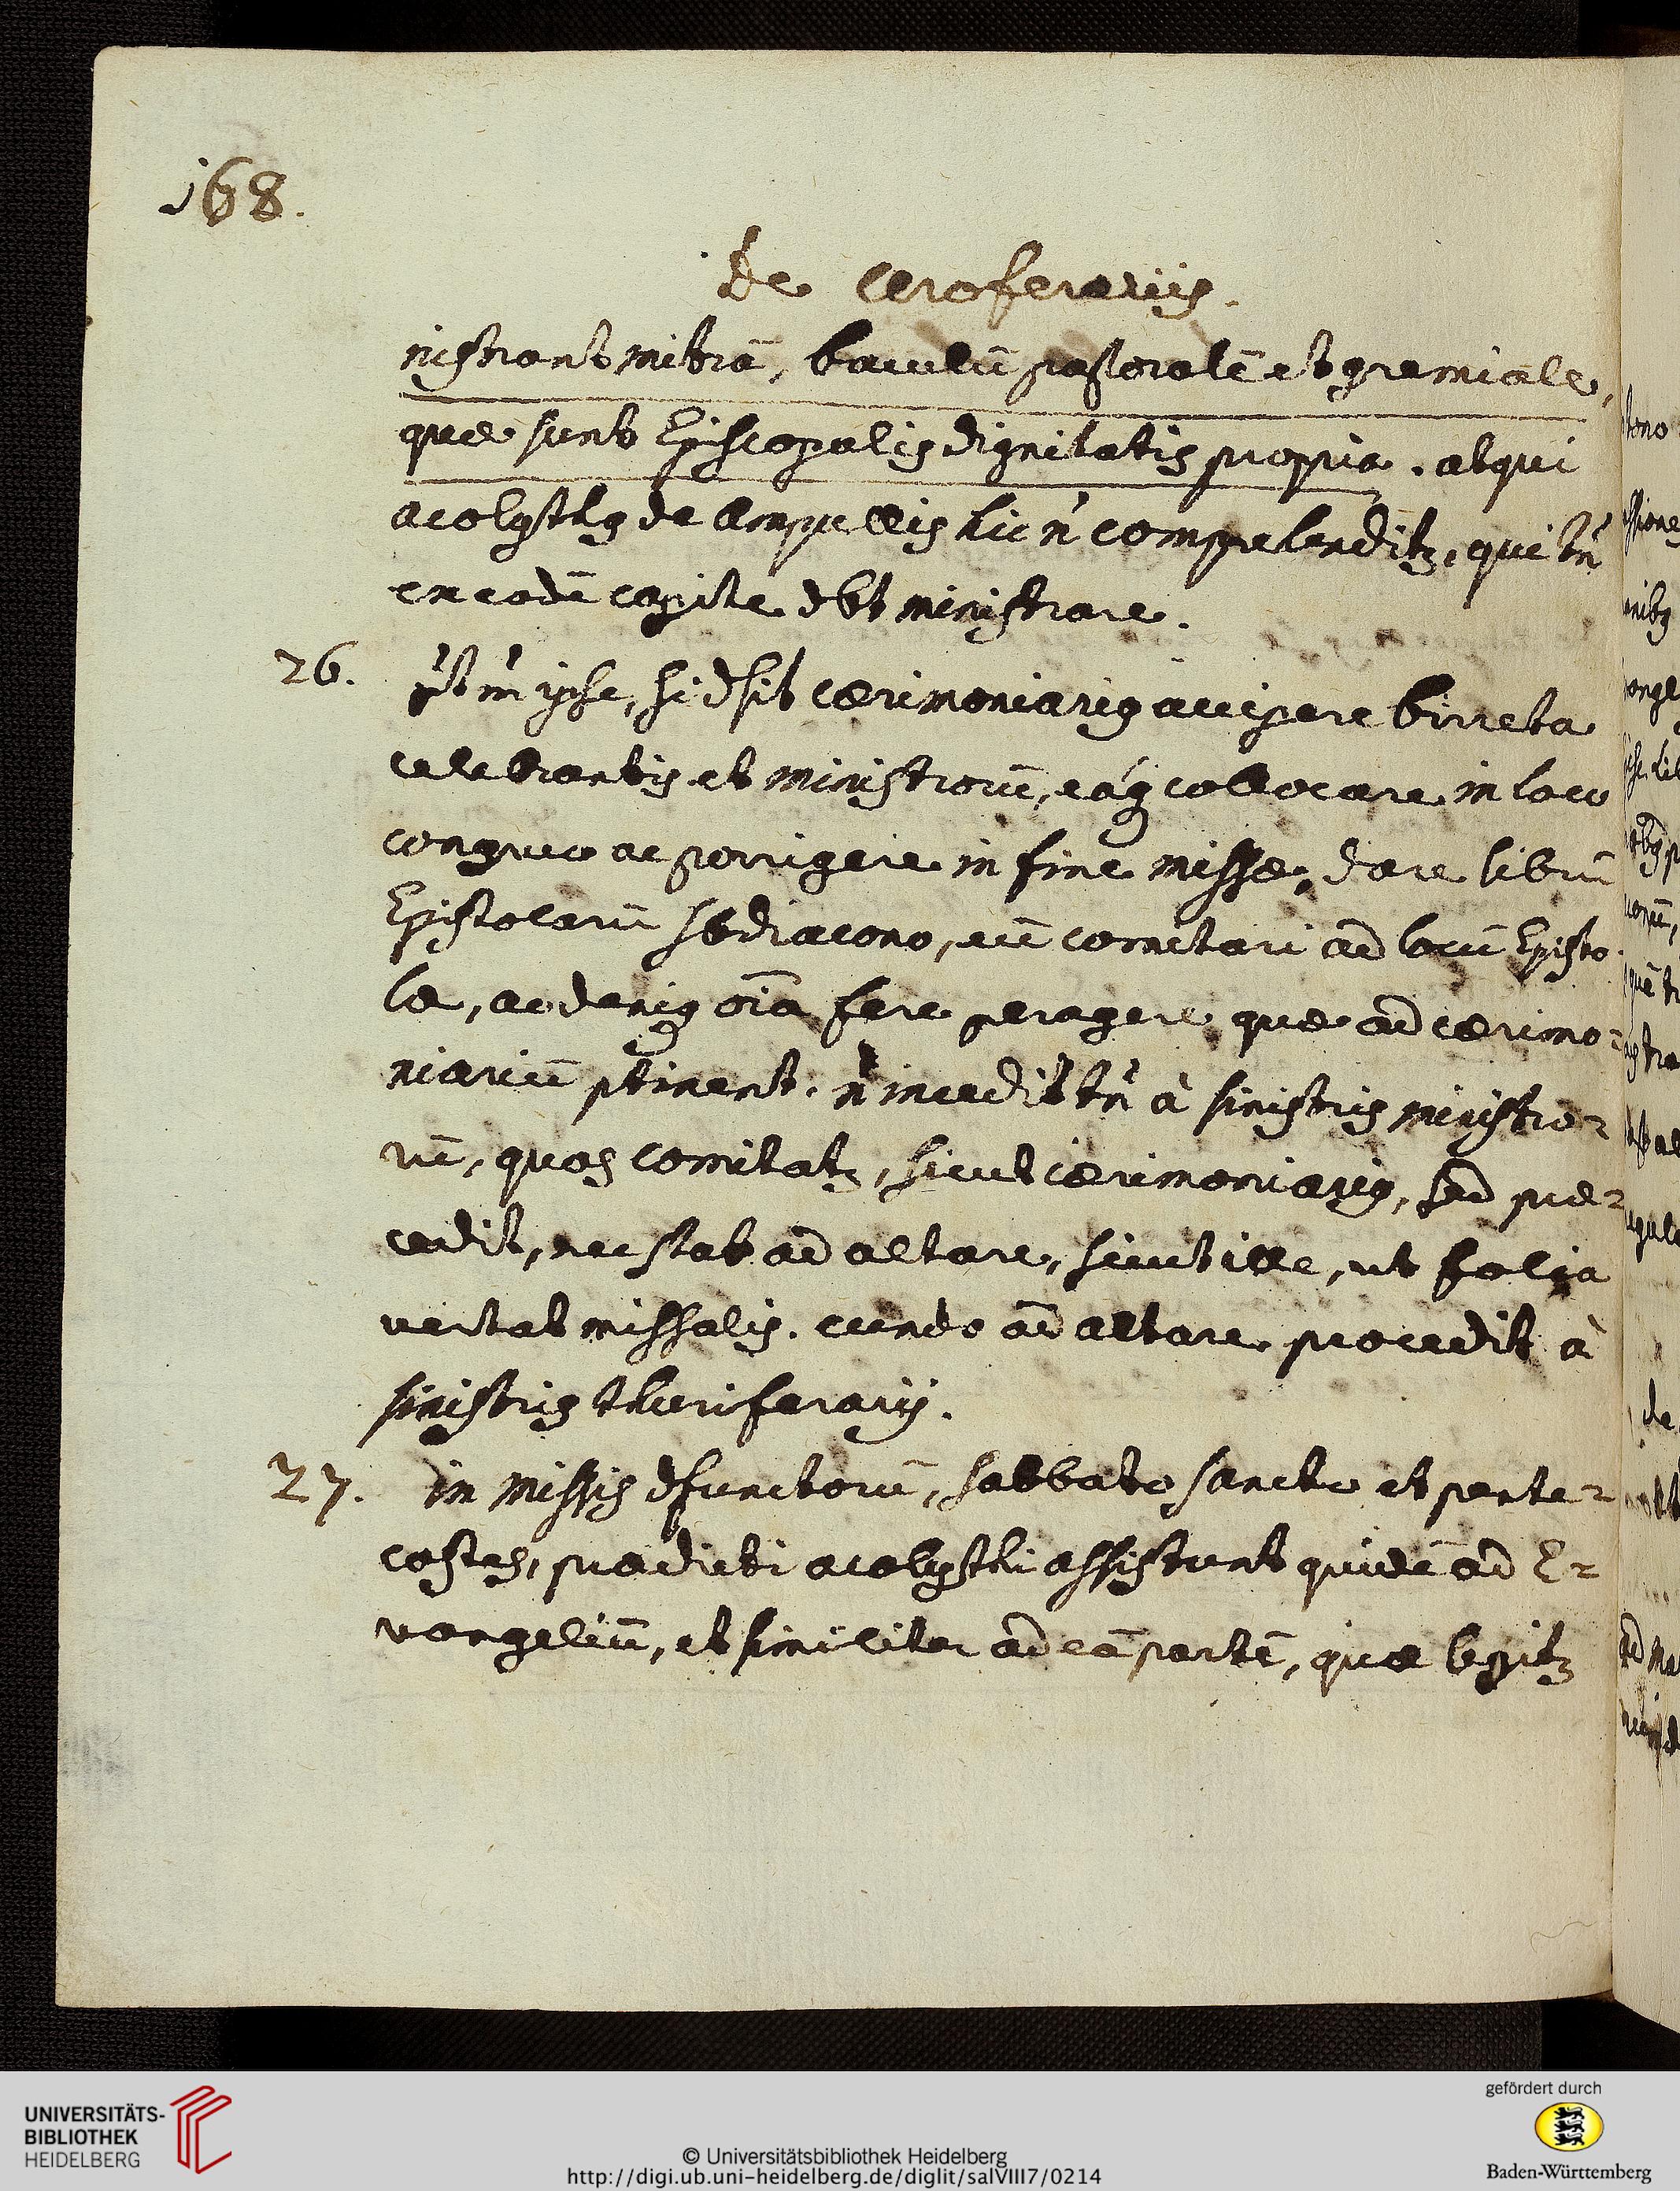 168.
De Ceroferariis.
nistrant mitrā, baculū pastoralē et gremiale,
quæ sunt Episcopalis dignitatis propria. atqui
acolythꝰ de ampullis hic ñ comprehenditꝛ, qui tñ
en eodē capite dbt ministrare.
26. ipse, si dsit cærimoniariꝰ accipere birreta
celebrantis et ministrorū, eáqꝫ collocare in loco
congruo ac porrigere in fine missæ, dare librū
Epistolarū sbdiacono, eū comitari ad locū Episto-
læ, ac deniqꝫ oīa fere peragere quæ ad cærimo-
niariū ptinent. ñ incedit tñ à sinistris ministro-
rū, quos comitatꝛ, sicut cærimoniariꝰ, sed præ-
cedit, nec stat ad altare, sicut ille, ut folia
vertat missalis. eundo ad altare procedit à
sinistris thuriferarij.
27. in Missis dfunctorū, sabbato sancto et pente-
costes, prædicti acolythi assistunt quidē ad E-
vangeliū, et similiter ad eā partē, quæ legitꝛ
tono
de
UNIVERSITÄTS-
BIBLIOTHEK
HEIDELBERG
© Universitätsbibliothek Heidelberg
http://digi.ub.uni-heidelberg.de/diglit/salVIII7/0214
gefördert durch
Baden-Württemberg